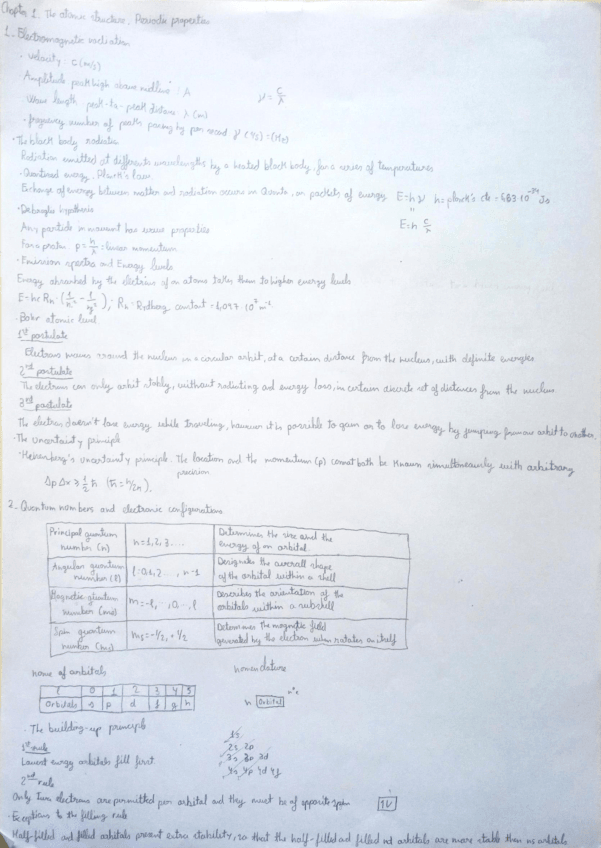 Chapter 1. The atomic structure, Periodic properties
1 - Electromagnetic radiation
· velocity: c (m/s)
Amplitude peak high above midline: A
Wave length peak-to-peak distance λ (m)
ν = c/λ
· frequency number of peaks passing by per second ν (1/s) = (Hz)
· The black body radiation
Radiation emitted at differents wavelengths by a heated black body, for a series of temperatures
· Quantized energy, Planck's law.
Exchange of energy between matter and radiation occurs in Quanta, on packets of energy E = h ν h = planck's cte = 6.63·10⁻³⁴ Js
· Debroglie hypothesis
E = h c/λ
Any particle in movement has wave properties
For a photon p = h/λ = linear momentum
· Emission spectra and Energy levels
Energy absorbed by the electrons of an atoms takes them to higher energy levels
E = hc R
· Bohr atomic level
1st postulate
Electrons moves around the nucleus in a circular orbit, at a certain distance from the nucleus, with definite energies
2nd postulate
The electrons can only orbit stably, without radiating and energy loss, in certain discrete set of distances from the nucleus
3rd postulate
The electron doesn't lose energy while traveling, however it be possible to gain or to lose energy by jumping from one orbit to another.
· The uncertainty principle
· Heisenberg's uncertainty principle. The location and the momentum (p) cannot both be known simultaneously with arbitrary
precision
Δp Δx ≥ ½ ħ (ħ = h/2π).
2 - Quantum numbers and electronic configurations
Principal quantum number (n) n = 1, 2, 3.... Determines the size and the energy of an orbital.
Angular quantum number (l) l: 0, 1, 2 ..., n-1 Designates the overall shape of the orbital within a shell
Magnetic quantum number (ml) m = -l, .., 0, .., l Describes the orientation of the orbitals within a subshell
Spin quantum number (ms) ms = -1/2, + 1/2 Determines the magnetic field generated by the electron when rotates on itself
name of orbitals nomenclature
l 0 1 2 3 4 5
Orbitals s p d f g h
n Orbital
· The building-up principle
1s
1st rule
2s 2p
Lowest energy orbitals fill first
3s 3p 3d
2nd rule
4s 4p 4d 4f
Only two electrons are permitted per orbital and they must be of opposite spin
· Exceptions to the filling rule
Half-filled and filled orbitals present extra stability, so that the half-filled and filled nd orbitals are more stable then ns orbitals